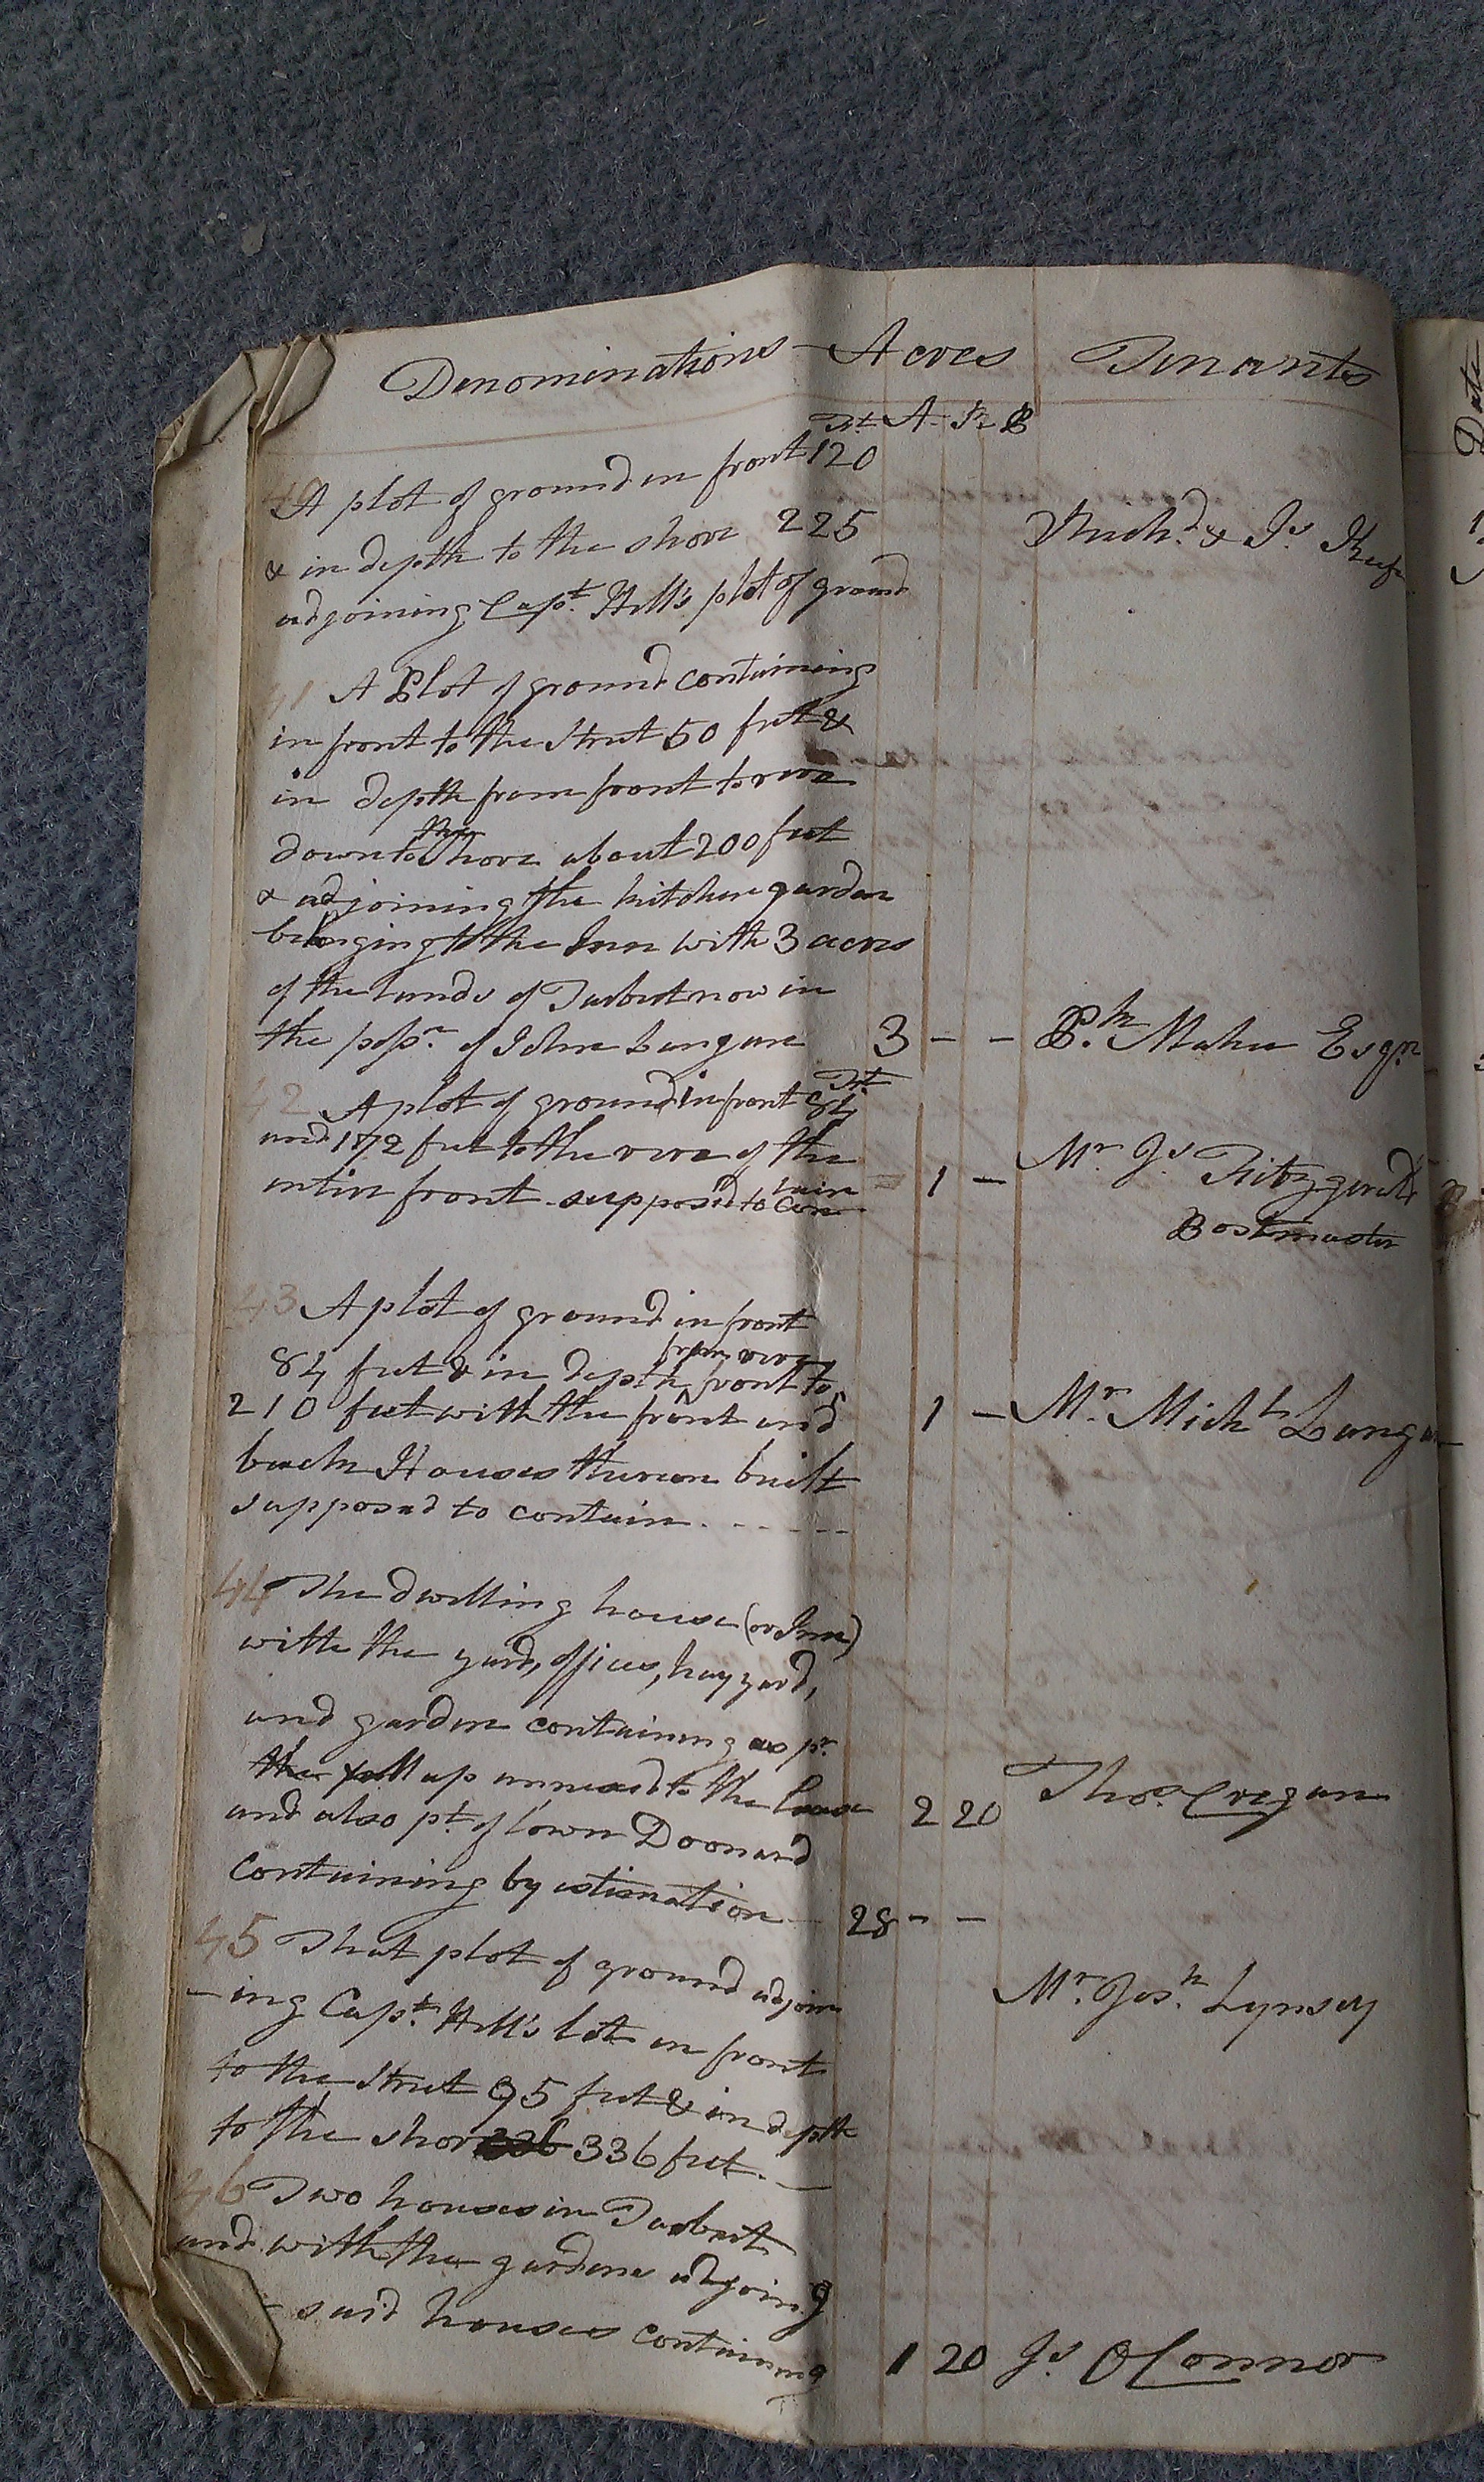 Denominations Acres Tenants
Ft. A. R. P
40 A plot of ground in front 120
& in depth to the shore 225 Richd. & Js.
adjoining Capt. Hill's plot of ground
41 A Plot of ground containing
in front to the Street 50 feet &
in depth from front to rere
down to the shore about 200 feet
& adjoining the kitchen garden
belonging to the Inn with 3 acres
of the lands of Tarbert now in
the possn. of John Langan 3 - - Pk. Mahu Esqr.
42 A plot of ground in front 84 Ft
and 172 feet to the rere of the
entire front supposed to contain - 1 - Mr. Js. Fitzgerald
Postmaster
43 A plot of ground in front
84 feet & in depth from front to rere
210 feet with the front and 1 - Mr. Michl. Langan
back Houses thereon built
supposed to contain. - - - - -
44 The dwelling house (or Inn)
with the yard, offices, hayyard,
and garden containing as pr.
the map annexed to the lease 2 20 Thos. Cregan
and also pt. of lown Doonard
containing by estimation 28 - -
45 That plot of ground adjoin
-ing Capt. Hill's lot in front Mr. Josh. Lynsey
to the Street 95 feet & in depth
to the shore 336 336 feet. -
46 Two houses in Tarbert
and with the gardens adjoing
said houses containing 1 20 Js. OConnor